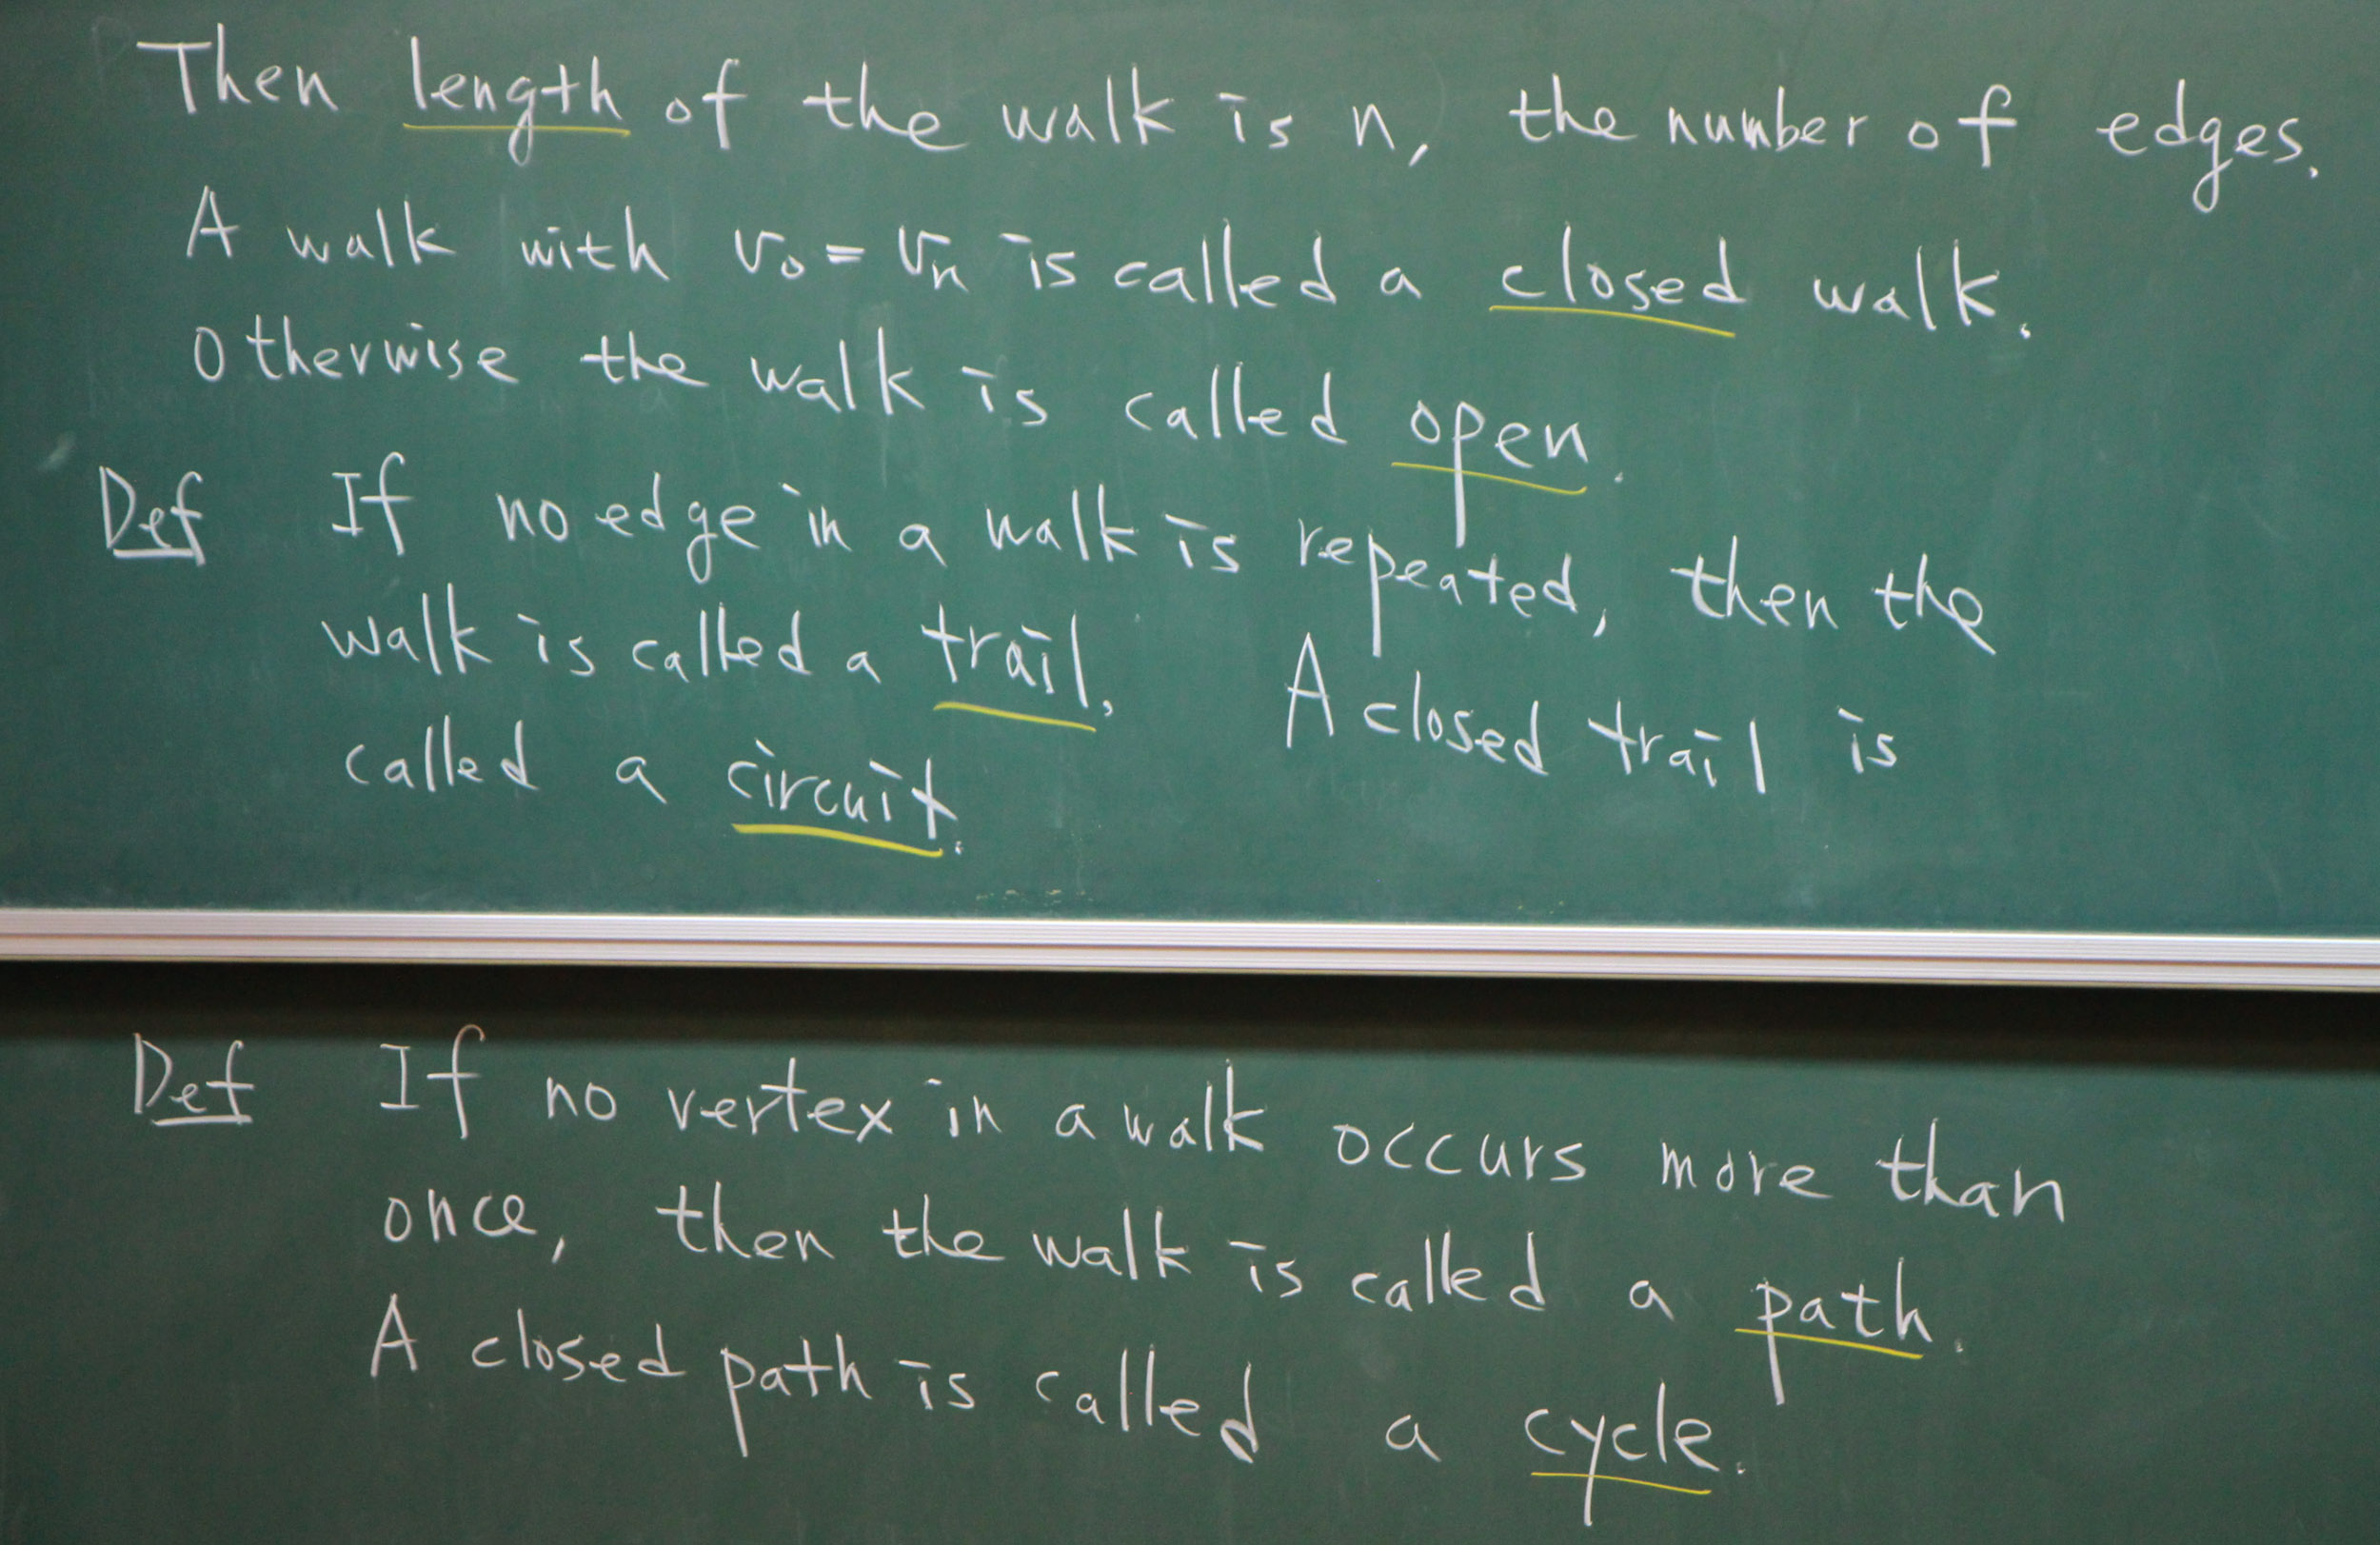 Then length of the walk is n, the number of edges.
A walk with v₀ = vₙ is called a closed walk.
Otherwise the walk is called open.
Def If no edge in a walk is repeated, then the
walk is called a trail. A closed trail is
called a circuit.
Def If no vertex in a walk occurs more than
once, then the walk is called a path.
A closed path is called a cycle.